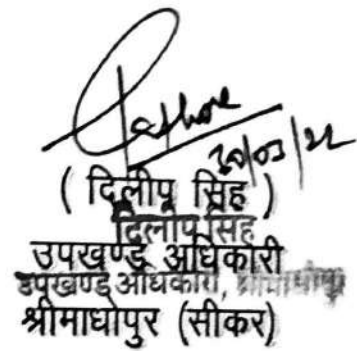 Rathore
30/03/22
( दिलीप सिंह )
दिलीप सिंह
उपखण्ड अधिकारी
उपखण्ड अधिकारी, श्रीमाधोपुर
श्रीमाधोपुर (सीकर)